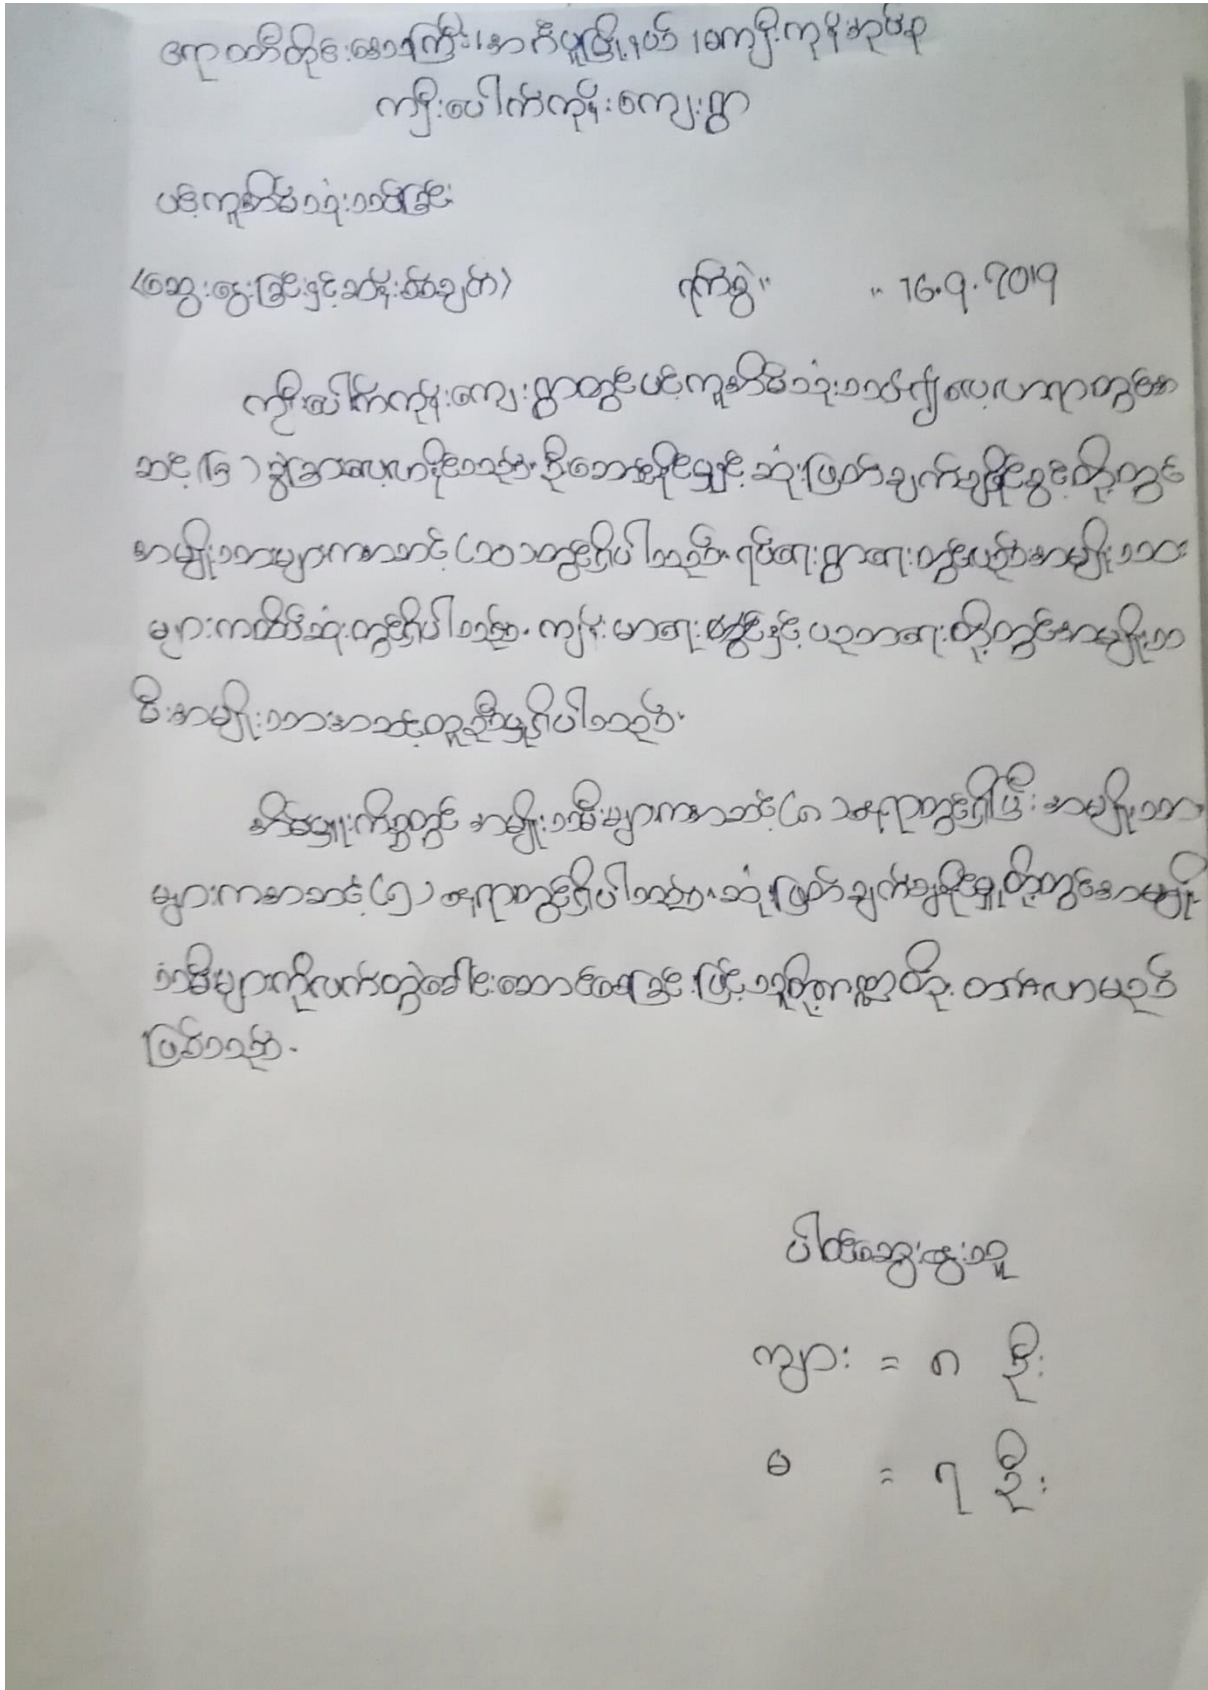 ဧရာဝတီတိုင်းဒေသကြီး၊အင်္ဂပူမြို့နယ်၊ကျေးကုန်းအုပ်စု
ကျီးပေါက်ကုန်းကျေးရွာ
ပင့်ကူအိမ်သုံးသပ်ခြင်း
(ဆွေးနွေးခြင်းနှင့်ဆန်းစစ်ချက်) ရက်စွဲ။ ။ 16.9.2019
ကျီးပေါက်ကုန်းကျေးရွာတွင်ပင့်ကူအိမ်သုံးသပ်၍လေ့လာရာတွင်အ
ဆင့် (၆) ခုခွဲခြားလေ့လာနိုင်သည်။ ဦးဆောင်နိုင်မှုနှင့် ဆုံးဖြတ်ချက်ချနိုင်ခွင့်တို့တွင်
အမျိုးသားများကအဆင့် (၁၀)တွင်ရှိပါသည်။ ရပ်ရေးရွာရေးတွင်လည်းအမျိုးသား
များကထိပ်ဆုံးတွင်ရှိပါသည်။ ကျန်းမာရေးနှင့် ပညာရေးတို့တွင်အမျိုးသ
မီးအမျိုးသားအဆင့်တူညီမှုရှိပါသည်။
အိမ်မှုကိစ္စတွင် အမျိုးသမီးများကအဆင့်(၈)နေရာတွင်ရှိပြီး အမျိုးသား
များကအဆင့်(၅)နေရာတွင်ရှိပါသည်။ ဆုံးဖြတ်ချက်ချနိုင်မှုတို့တွင်အမျိုး
သမီးများကိုလက်တွဲခေါ်ဆောင်စေခြင်းဖြင့်သူတို့ဏ္ဍတိုးတက်လာမည်
ဖြစ်သည်။
ပါဝင်ဆွေးနွေးသူ
ကျား = ၈ ဦး
မ = ၇ ဦး